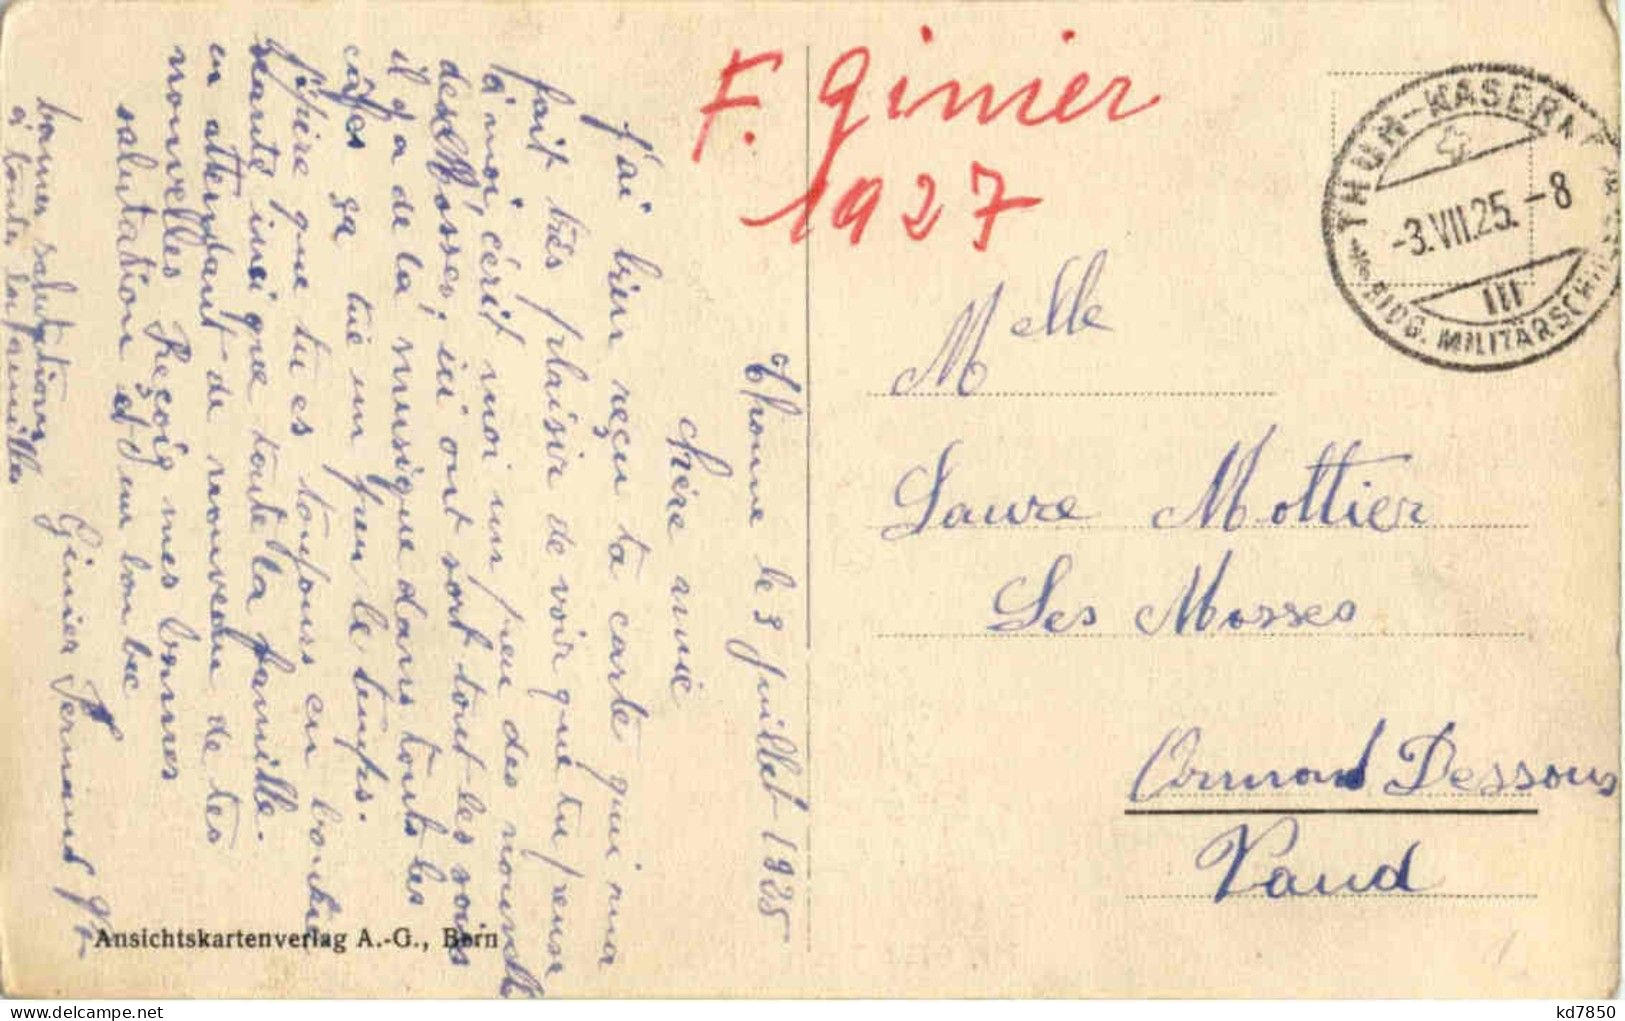 F. Ginier
1927
THUN-KASERNE
-3.VII.25.-8
III
EIDG. MILITÄRSCHULE
Thoune le 3 juillet 1925
Chère amie
J'ai bien reçu ta carte qui ma
fait très plaisir de voir que tu pense
à moi, cérit moi un peu des nouvelle
des Mosses, ici ont sort tout les soirs
il y a de la musique dans touts les
cafes sa tue un peu le temps.
J'éspère que tu es toujours en bonne
santé insi que toute la famille.
en attendant de nouveau de tes
nouvelles Reçoig mes bonnes
salutations et un bon bec
Ginier Fernand
bonnes salutations
à toute la famille
Melle
Laure Mottier
Les Mosses
Ormond Dessous
Vaud
Ansichtskartenverlag A.-G., Bern
kd7850